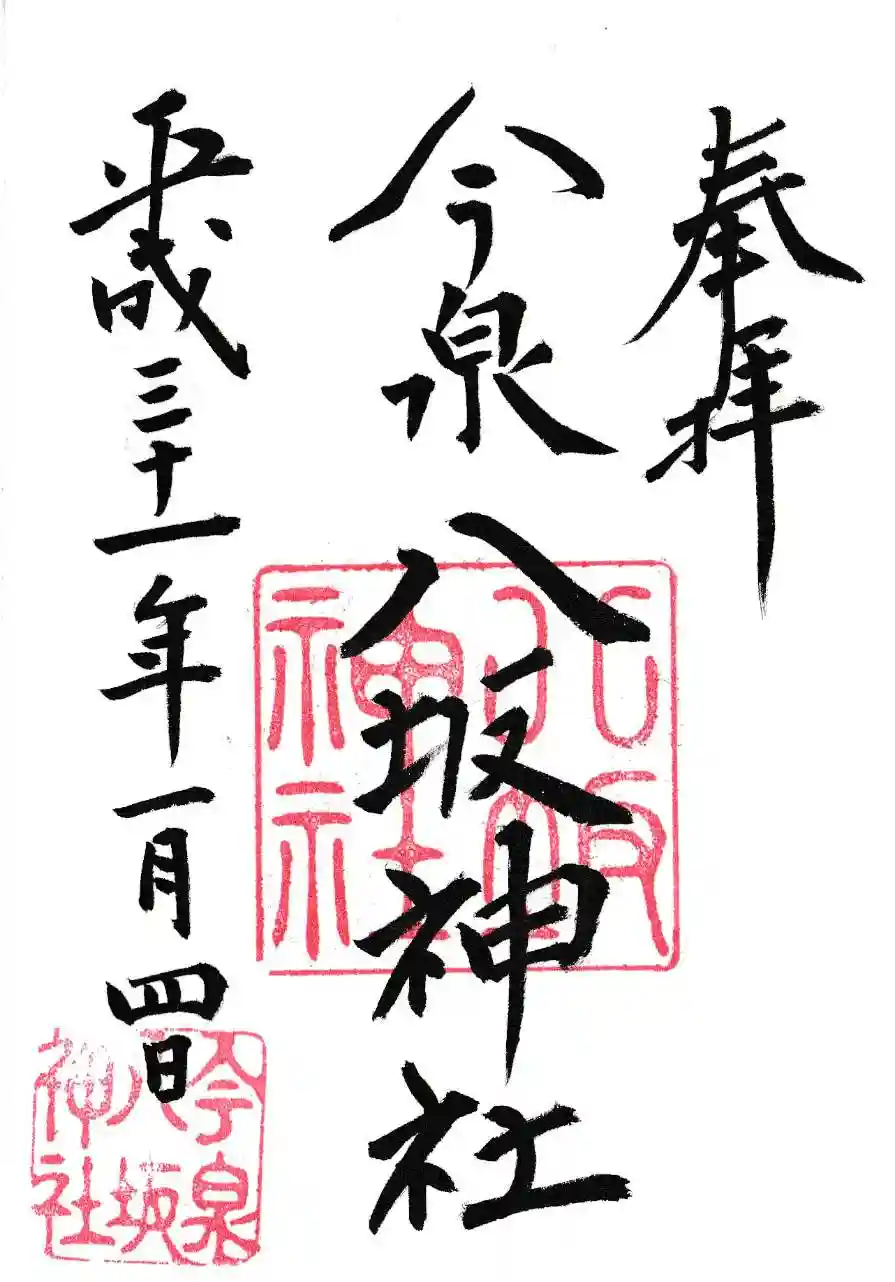 奉拝
今泉八坂神社
平成三十一年一月四日
八坂
神社
今泉
八坂
神社